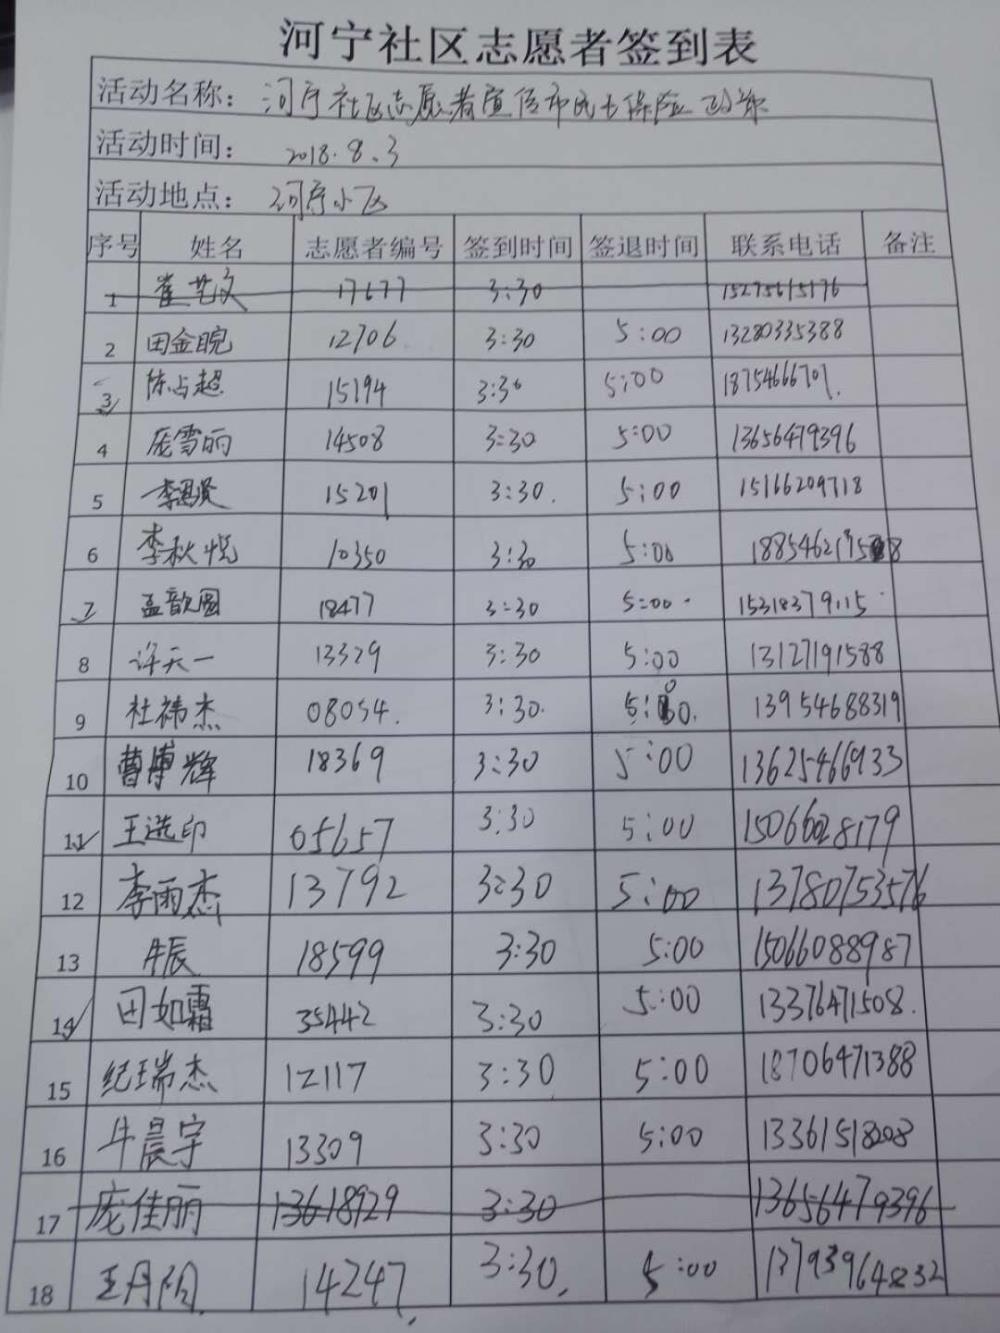 河宁社区志愿者签到表
活动名称: 河宁社区志愿者宣传市民大保险政策
活动时间: 2018.8.3
活动地点: 河宁小区
序号 姓名 志愿者编号 签到时间 签退时间 联系电话 备注
1 崔艺文 17677 3:30 15275615176
2 田金晥 12706 3:30 5:00 13280335388
3 陈占超 15194 3:30 5:00 18754666701.
4 庞雪丽 14508 3:30 5:00 13656479396
5 李思贤 15201 3:30. 5:00 15166209718
6 李秋悦 10350 3:30 5:00
7 孟歆圆 18477 3:30 5:00. 15318379115
8 许天一 13329 3:30 5:00 13127191588
9 杜祎杰 08054. 3:30. 13954688319
10 曹博辉 18369 3:30 5:00 13625466933
11 王选印 05657 3:30 5:00 15066028179
12 李雨杰 13792 3:30 5:00 13780753576
13 牛辰 18599 3:30 5:00 15066088987
14 田如霜 35442 3:30 5:00 13376471508.
15 纪瑞杰 12117 3:30 5:00 18706471388
16 牛晨宇 13309 3:30 5:00 13361518208
17 庞佳丽 13618929 3:30 13656479396
18 王丹阳 14247, 3:30, 5:00